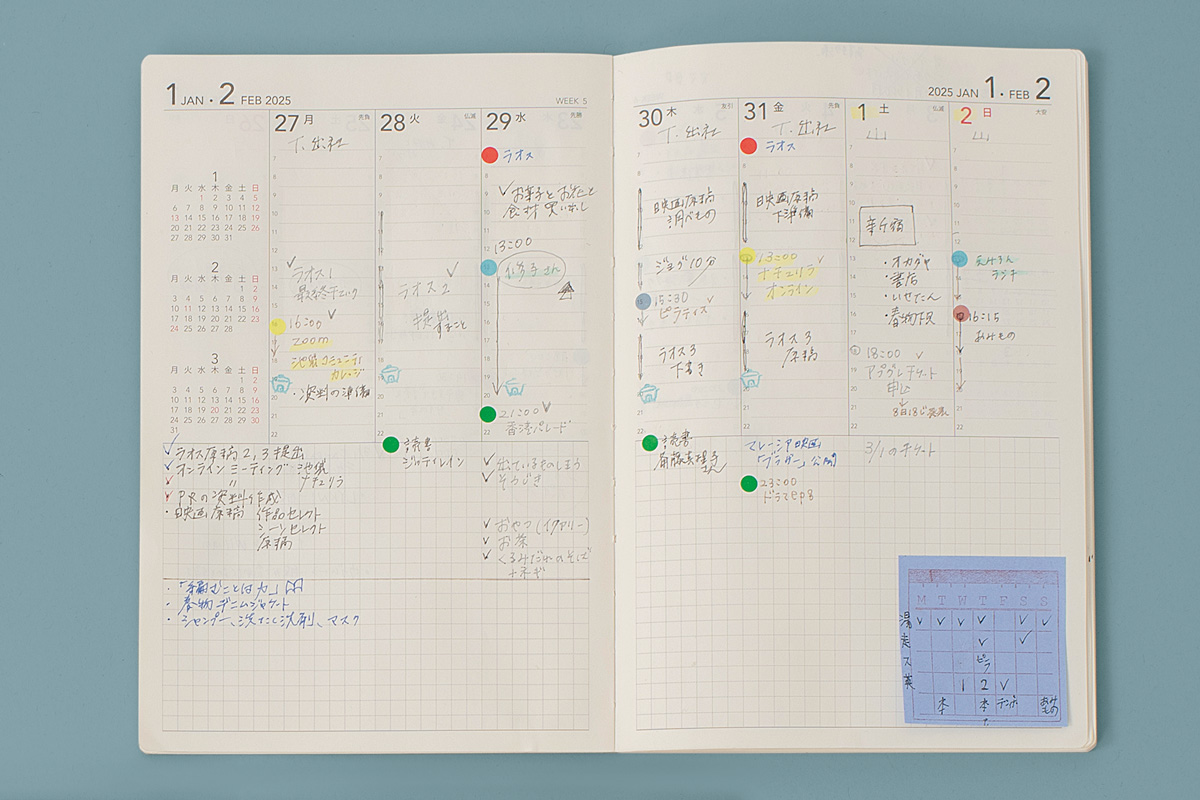 1 JAN . 2 FEB 2025
WEEK 5
1
月 火 水 木 金 土 日
1 2 3 4 5
6 7 8 9 10 11 12
13 14 15 16 17 18 19
20 21 22 23 24 25 26
27 28 29 30 31
2
月 火 水 木 金 土 日
1 2
3 4 5 6 7 8 9
10 11 12 13 14 15 16
17 18 19 20 21 22 23
24 25 26 27 28
3
月 火 水 木 金 土 日
1 2
3 4 5 6 7 8 9
10 11 12 13 14 15 16
17 18 19 20 21 22 23
24 25 26 27 28 29 30
31
27 月 先負
T. 出社
ラオス1
最終チェック
16:00
zoom
池袋コミュニティ
カレッジ
・資料の準備
28 火 仏滅
ラオス2
提出
すること
読書
29 水 先勝
ラオス
お菓子とお花と
食材 買い出し
13:00
さん
21:00
香港パレード
出ているものしまう
そうじき
おやつ
お茶
くるみだれのそば
+ネギ
ラオス原稿2,3提出
オンラインミーティング 池袋
〃 ナチュリラ
PRの資料作成
・映画原稿 作品セレクト
シーンセレクト
原稿
・「編むことは力」
・春物 デニムジャケット
・シャンプー、洗たく洗剤、マスク
2025 JAN 1. FEB 2
30 木 友引
T. 出社
映画原稿
調べもの
ジョグ10分
15:30
ピラティス
ラオス3
下書き
読書
斎藤真理子
さん
31 金 先負
T. 出社
ラオス
映画原稿
下準備
13:00
ナチュリラ
オンライン
ラオス3
原稿
マレーシア映画
「ブラザー」公開
23:00
ドラマep8
1 土 仏滅
山
新宿
・オカダヤ
・書店
・いせたん
・春物下見
18:00
チケット
申込
3/1のチケット
2 日 大安
山
ランチ
16:15
あみもの
M T W T F S S
湯 ✓ ✓ ✓ ✓ ✓ ✓
走 ✓ ✓
ス ピラ
英 1 2 ✓
本 本 あみもの